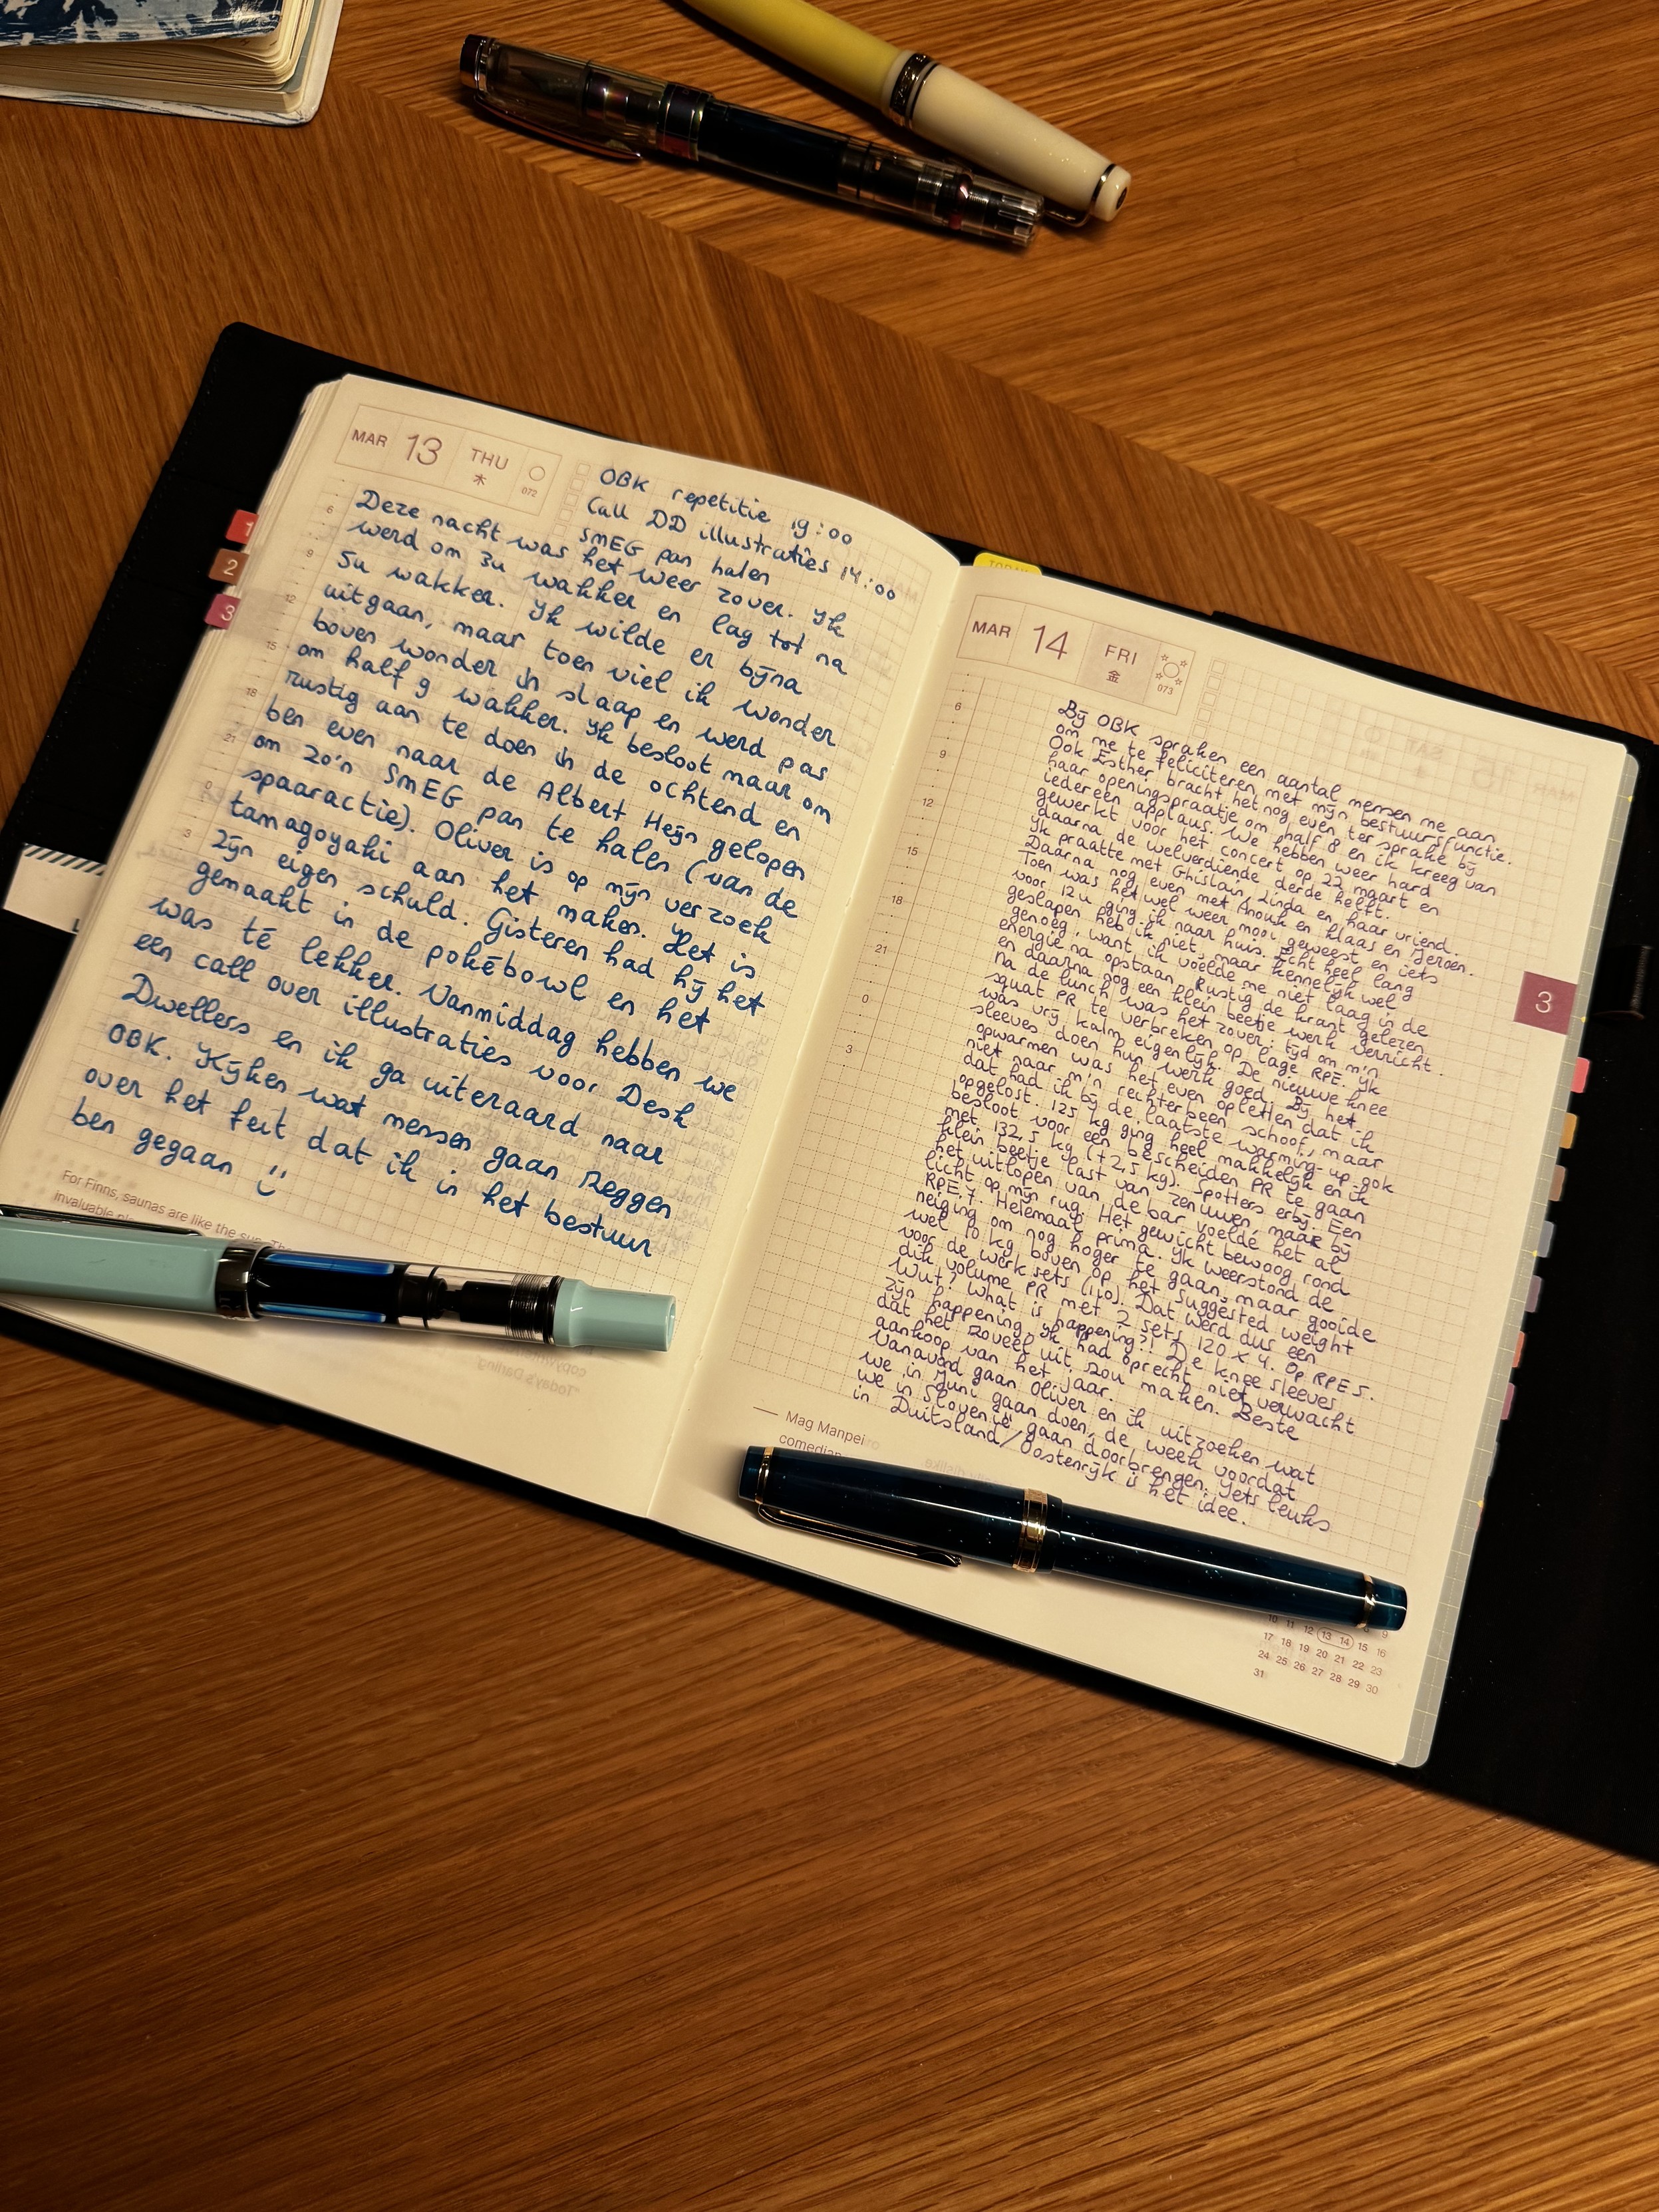 MAR 13 THU 木 072
OBK repetitie 19:00
Call DD illustraties 14:00
SMEG pan halen
6
9
12
15
18
21
0
3
Deze nacht was het weer zover. Ik
werd om 3u wakker en lag tot na
5u wakker. Ik wilde er bijna
uitgaan, maar toen viel ik wonder
boven wonder in slaap en werd pas
om half 9 wakker. Ik besloot maar om
rustig aan te doen in de ochtend en
ben even naar de Albert Heijn gelopen
om zo'n SMEG pan te halen (van de
spaaractie). Oliver is op mijn verzoek
tamagoyaki aan het maken. Het is
zijn eigen schuld. Gisteren had hij het
gemaakt in de pokébowl en het
was té lekker. Vanmiddag hebben we
een call over illustraties voor Desk
Dwellers en ik ga uiteraard naar
OBK. Kijken wat mensen gaan zeggen
over het feit dat ik in het bestuur
ben gegaan
For Finns, saunas are like the
invaluable
1
2
3
TODAY
MAR 14 FRI 金 073
6
9
12
15
18
21
0
3
Bij OBK spraken een aantal mensen me aan
om me te feliciteren met mijn bestuursfunctie.
Ook Esther bracht het nog even ter sprake bij
haar openingspraatje om half 8 en ik kreeg van
iedereen applaus. We hebben weer hard
gewerkt voor het concert op 22 maart en
daarna de welverdiende derde helft.
Ik praatte met Ghislain, Linda en haar vriend.
Daarna nog even met Anouk en Klaas en Jeroen.
Toen was het wel weer mooi geweest en iets
voor 12u ging ik naar huis. Echt heel lang
geslapen heb ik niet, maar kennelijk wel
genoeg, want ik voelde me niet laag in de
energie na opstaan. Rustig de krant gelezen
en daarna nog een klein beetje werk verricht.
Na de lunch was het zover: tijd om m'n
squat PR te verbreken op lage RPE. Ik
was vrij kalm eigenlijk. De nieuwe knee
sleeves doen hun werk goed. Bij het
opwarmen was het even opletten dat ik
niet naar m'n rechterbeen schoof, maar
dat had ik bij de laatste warming-up ook
opgelost. 125 kg ging heel makkelijk en ik
besloot voor een bescheiden PR te gaan
met 132,5 kg (+2,5 kg). Spotters erbij. Een
klein beetje last van zenuwen, maar bij
het uitlopen van de bar voelde het al
licht op mijn rug. Het gewicht bewoog rond
RPE 7. Helemaal prima. Ik weerstond de
neiging om nog hoger te gaan, maar gooide
wel 10 kg boven op het suggested weight
voor de werk sets (110). Dat werd dus een
dik volume PR met 2 sets 120 x 4. Op RPE 5.
Wut? What is happening?! De knee sleeves
zijn happening. Ik had oprecht niet verwacht
dat het zoveel uit zou maken. Beste
aankoop van het jaar.
Vanavond gaan Oliver en ik uitzoeken wat
we in juni gaan doen, de week voordat
we in Slovenië gaan doorbrengen. Iets leuks
in Duitsland/Oostenrijk is het idee.
3
Mag Manpei
comedian
10 11 12 13 14 15 16
17 18 19 20 21 22 23
24 25 26 27 28 29 30
31